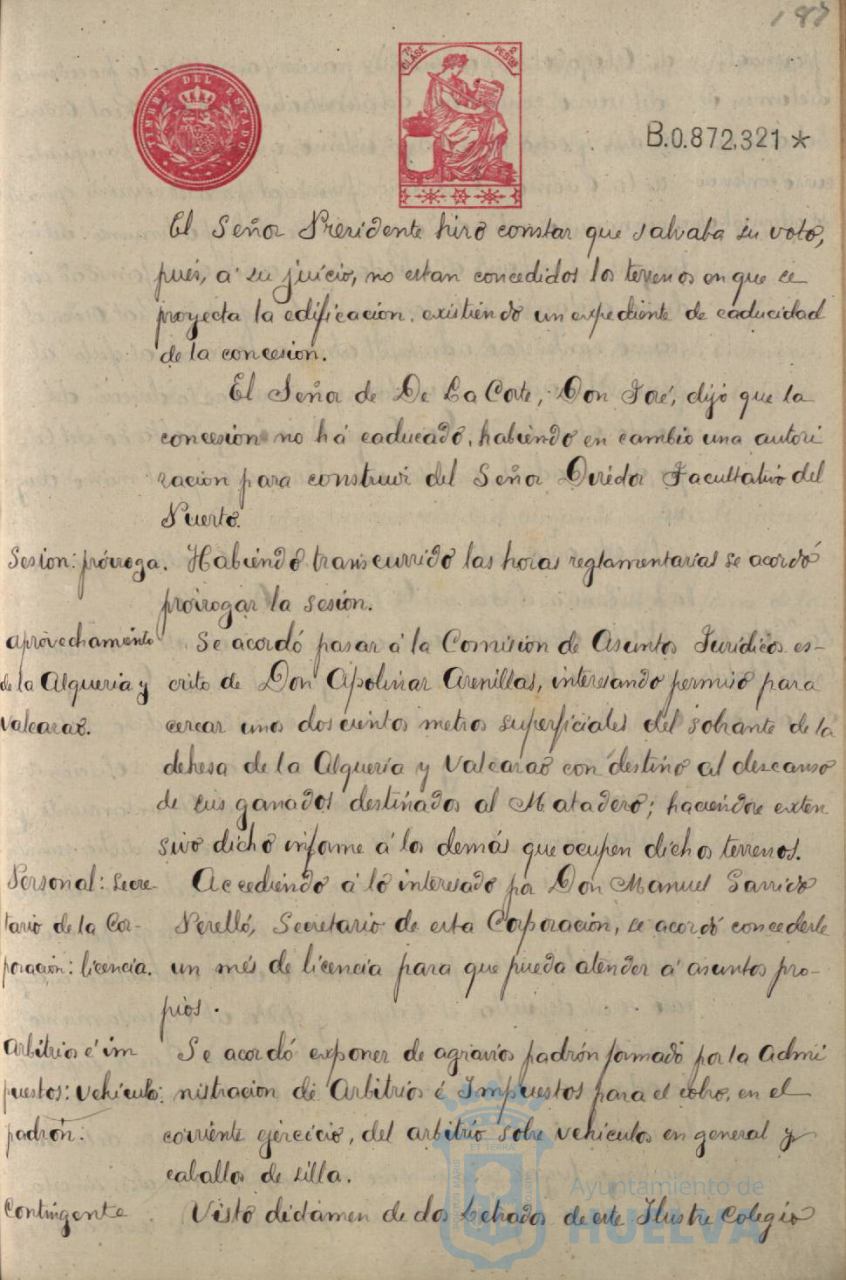 187
TIMBRE DEL ESTADO
7ª CLASE
2 PESOS
B.0.872,321 *
El Señor Presidente hizo constar que salvaba su voto,
pues, á su juicio, no estan concedidos los terrenos en que se
proyecta la edificación, existiendo un expediente de caducidad
de la concesion.
El Señor de De La Corte, Don José, dijó que la
concesion no há caducado, habiendo en cambio una autori
zacion para construir del Señor Diréctor Facultativo del
Puerto.
Sesion: prórroga.
Habiendo transcurrido las horas reglamentarias se acordó
prorrogar la sesión.
aprovechamiento
de la Alqueria y
Valcarao.
Se acordó pasar á la Comision de Asuntos Jurídicos es-
crito de Don Apolinar Arenillas, interesando permiso para
cercar unos doscientos metros superficiales del sobrante de la
dehesa de la Alquería y Valcarao con destino al descanso
de sus ganados destinados al Matadero; haciendose exten
sivo dicho informe á los demás que ocupen dichos terrenos.
Personal: Secre-
tario de la Cor-
poración: licencia.
Accediendo á lo interesado por Don Manuel Garrido
Perelló, Secretario de esta Corporación, se acordó concederle
un més de licencia para que pueda atender á asuntos pro-
pios.
Arbitrios é im
puestos: Vehículo:
padrón:
Se acordó exponer de agravios padrón formado por la Admi
nistracion de Arbitrios é Impuestos para el cobro, en el
corriente ejercicio, del arbitrio sobre vehículos en general y
caballos de silla.
Contingente
Visto dictámen de dos Letrados de este Ilustre Colegio
Ayuntamiento de
HUELVA